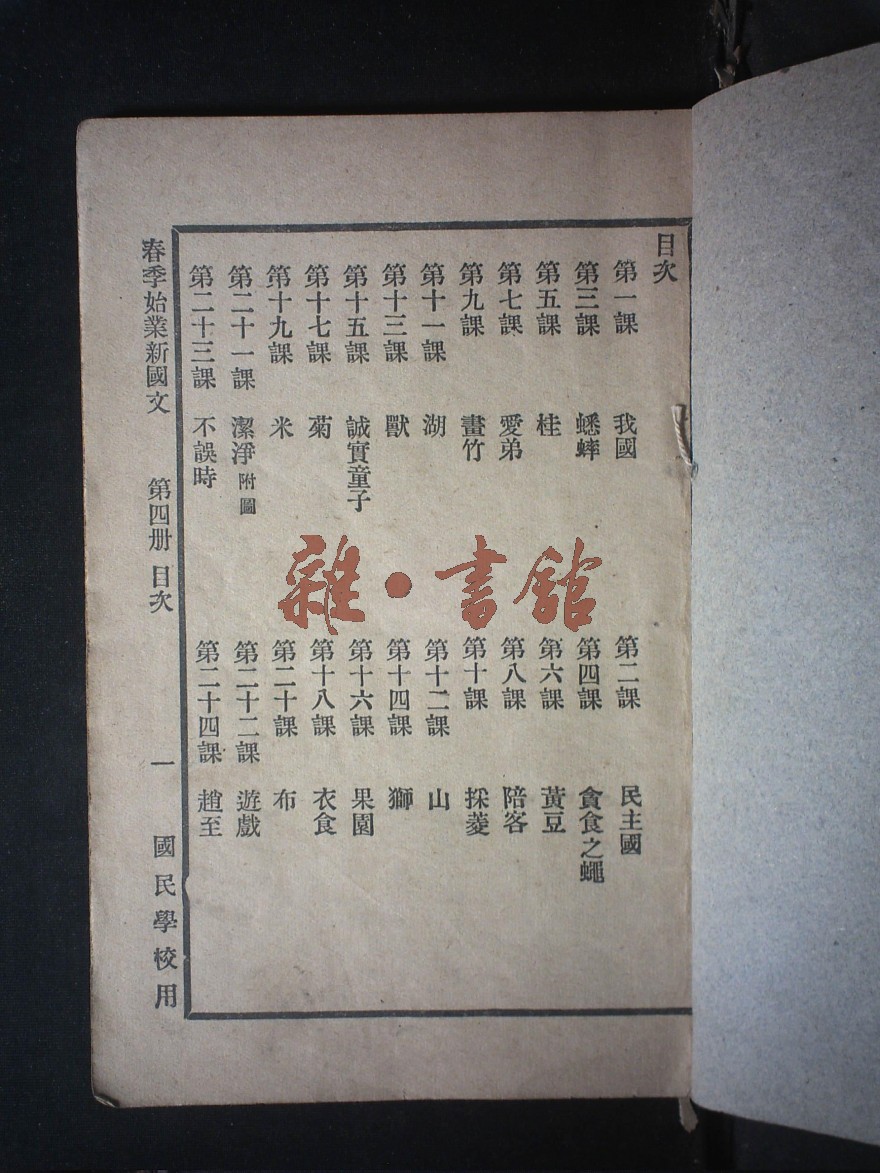 目次
第一課 我國
第二課 民主國
第三課 蟋蟀
第四課 貪食之蠅
第五課 桂
第六課 黃豆
第七課 愛弟
第八課 陪客
第九課 畫竹
第十課 採菱
第十一課 湖
第十二課 山
第十三課 獸
第十四課 獅
第十五課 誠實童子
第十六課 果園
第十七課 菊
第十八課 衣食
第十九課 米
第二十課 布
第二十一課 潔淨 附圖
第二十二課 遊戲
第二十三課 不誤時
第二十四課 趙至
春季始業新國文 第四册 目次 一 國民學校用
雜·書館